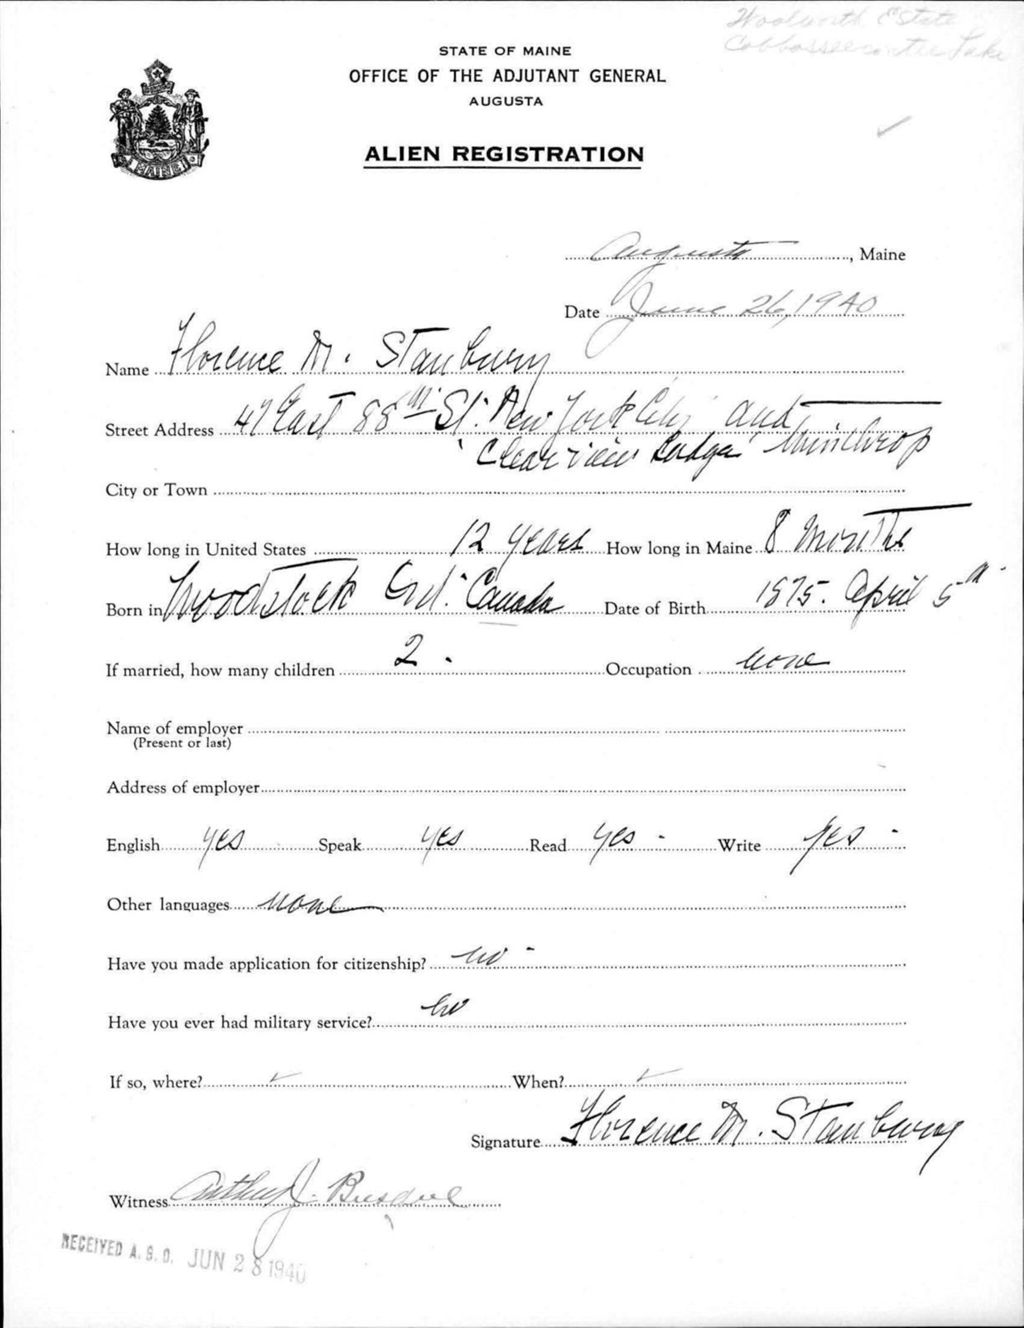 Woolworth Estate
Cobbosseecontee Lake
STATE OF MAINE
OFFICE OF THE ADJUTANT GENERAL
AUGUSTA
ALIEN REGISTRATION
MAINE
Augusta, Maine
Date June 26, 1940
Name Florence M. Stanbury
Street Address 47 East 88th St. New York City and
"Clearview Lodge" Winthrop
City or Town
How long in United States 12 years How long in Maine 8 Months
Born in Woodstock Ont. Canada Date of Birth 1875. April 5th
If married, how many children 2. Occupation none
Name of employer
(Present or last)
Address of employer
English yes Speak yes Read yes - Write yes -
Other languages none
Have you made application for citizenship? no -
Have you ever had military service? no
If so, where? When?
Signature Florence M. Stanbury
Witness Arthur J.
RECEIVED A. G. O. JUN 28 1940